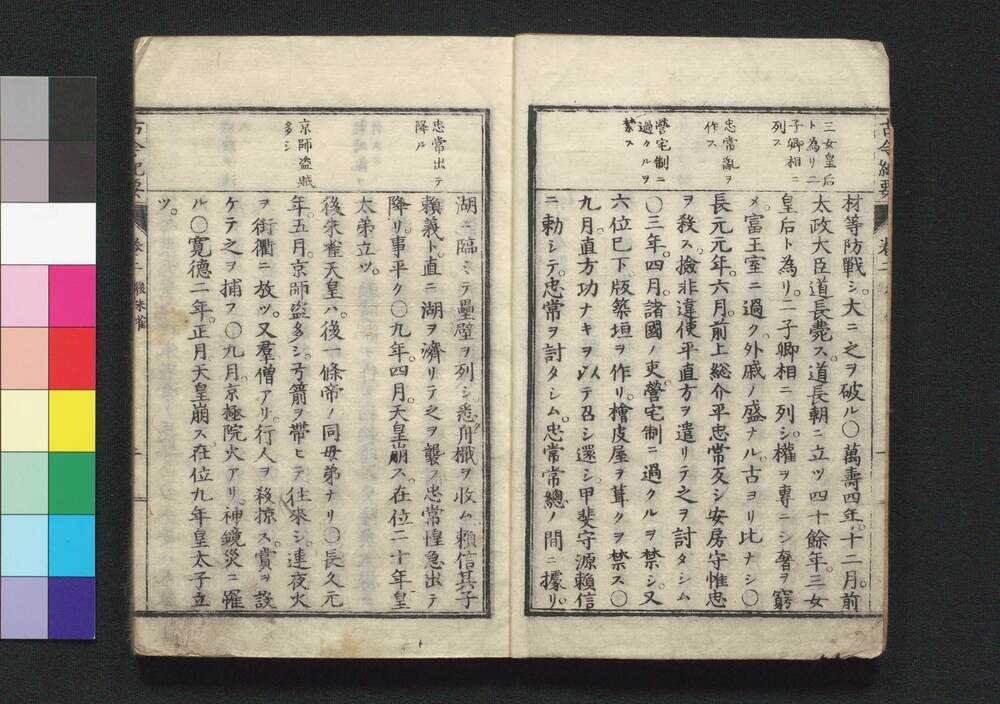 三女皇后
ト為リ二
子卿相ニ
列ス
忠常亂ヲ
作ス
營宅制ニ
過クルヲ
禁ス
材等防戰シ。大ニ之ヲ破ル〇萬壽四年。十二月。前
太政大臣道長薨ス。道長朝ニ立ツ四十餘年。三女
皇后ト為リ。二子卿相ニ列シ。權ヲ專ニシ。奢ヲ窮
メ。富王室ニ過ク。外戚ノ盛ナル。古ヨリ比ナシ〇
長元元年。六月。前上総介平忠常反シ。安房守惟忠
ヲ殺ス。撿非違使平直方ヲ遣リテ之ヲ討タシム
〇三年。四月。諸國ノ吏。營宅制ニ過クルヲ禁シ。又
六位已下。版築垣ヲ作リ。檜皮屋ヲ葺クヲ禁ス〇
九月。直方功ナキヲ以テ召シ還シ。甲斐守源頼信
ニ勅シテ。忠常ヲ討タシム。忠常常總ノ間ニ據リ。
古今紀要
卷二
忠常出テ
降ル
京師盗賊
多シ
湖ニ臨ミテ壘壁ヲ列シ。悉舟檝ヲ收ム。頼信其子
頼義ト。直ニ湖ヲ濟リテ之ヲ襲フ。忠常惶急出テ
降リ。事平ク〇九年。四月。天皇崩ス。在位二十年。皇
太弟立ツ。
後朱雀天皇ハ。後一條帝ノ同母弟ナリ〇長久元
年。五月。京師盗多シ。弓箭ヲ帶ヒテ往來シ。連夜火
ヲ街衢ニ放ツ。又羣僧アリ。行人ヲ殺掠ス。賞ヲ設
ケテ之ヲ捕フ〇九月。京極院火アリ。神鏡災ニ罹
ル〇寛德二年。正月。天皇崩ス。在位九年皇太子立
ツ。
古今紀要
卷二
後朱雀